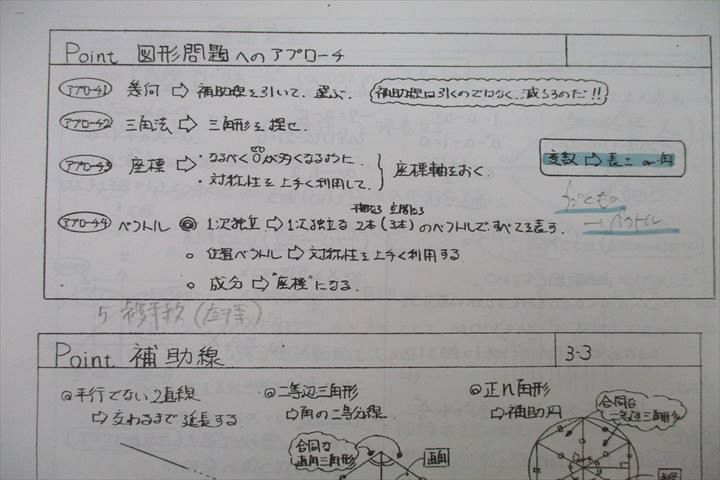 Point 図形問題へのアプローチ
アプローチ1 幾何 ⇨ 補助線を引いて、選ぶ. 補助線は引くのではなく、減らすのだ!!
アプローチ2 三角法 ⇨ 三角形を探せ.
アプローチ3 座標 ⇨ ・なるべく0が多くなるように.
・対称性を上手く利用して.
座標軸をおく.
変数 ⇨ 長さ or 角
→ベクトル
平面なら 空間なら
アプローチ4 ベクトル ◎ 1次独立 ⇨ 1次独立な 2本(3本)のベクトルですべてを表す.
○ 位置ベクトル ⇨ 対称性を上手く利用する
○ 成分 ⇨ "座標"になる.
5 複素数
Point 補助線 3-3
◎平行でない2直線
⇨ 交わるまで延長する
◎二等辺三角形
⇨角の二等分線
合同な
直角三角形
◎正n角形
⇨補助円
合同な
二等辺三角形